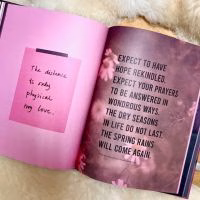 The distance
is only
physical
my love.
EXPECT TO HAVE
HOPE REKINDLED.
EXPECT YOUR PRAYERS
TO BE ANSWERED IN
WONDROUS WAYS.
THE DRY SEASONS
IN LIFE DO NOT LAST.
THE SPRING RAINS
WILL COME AGAIN.